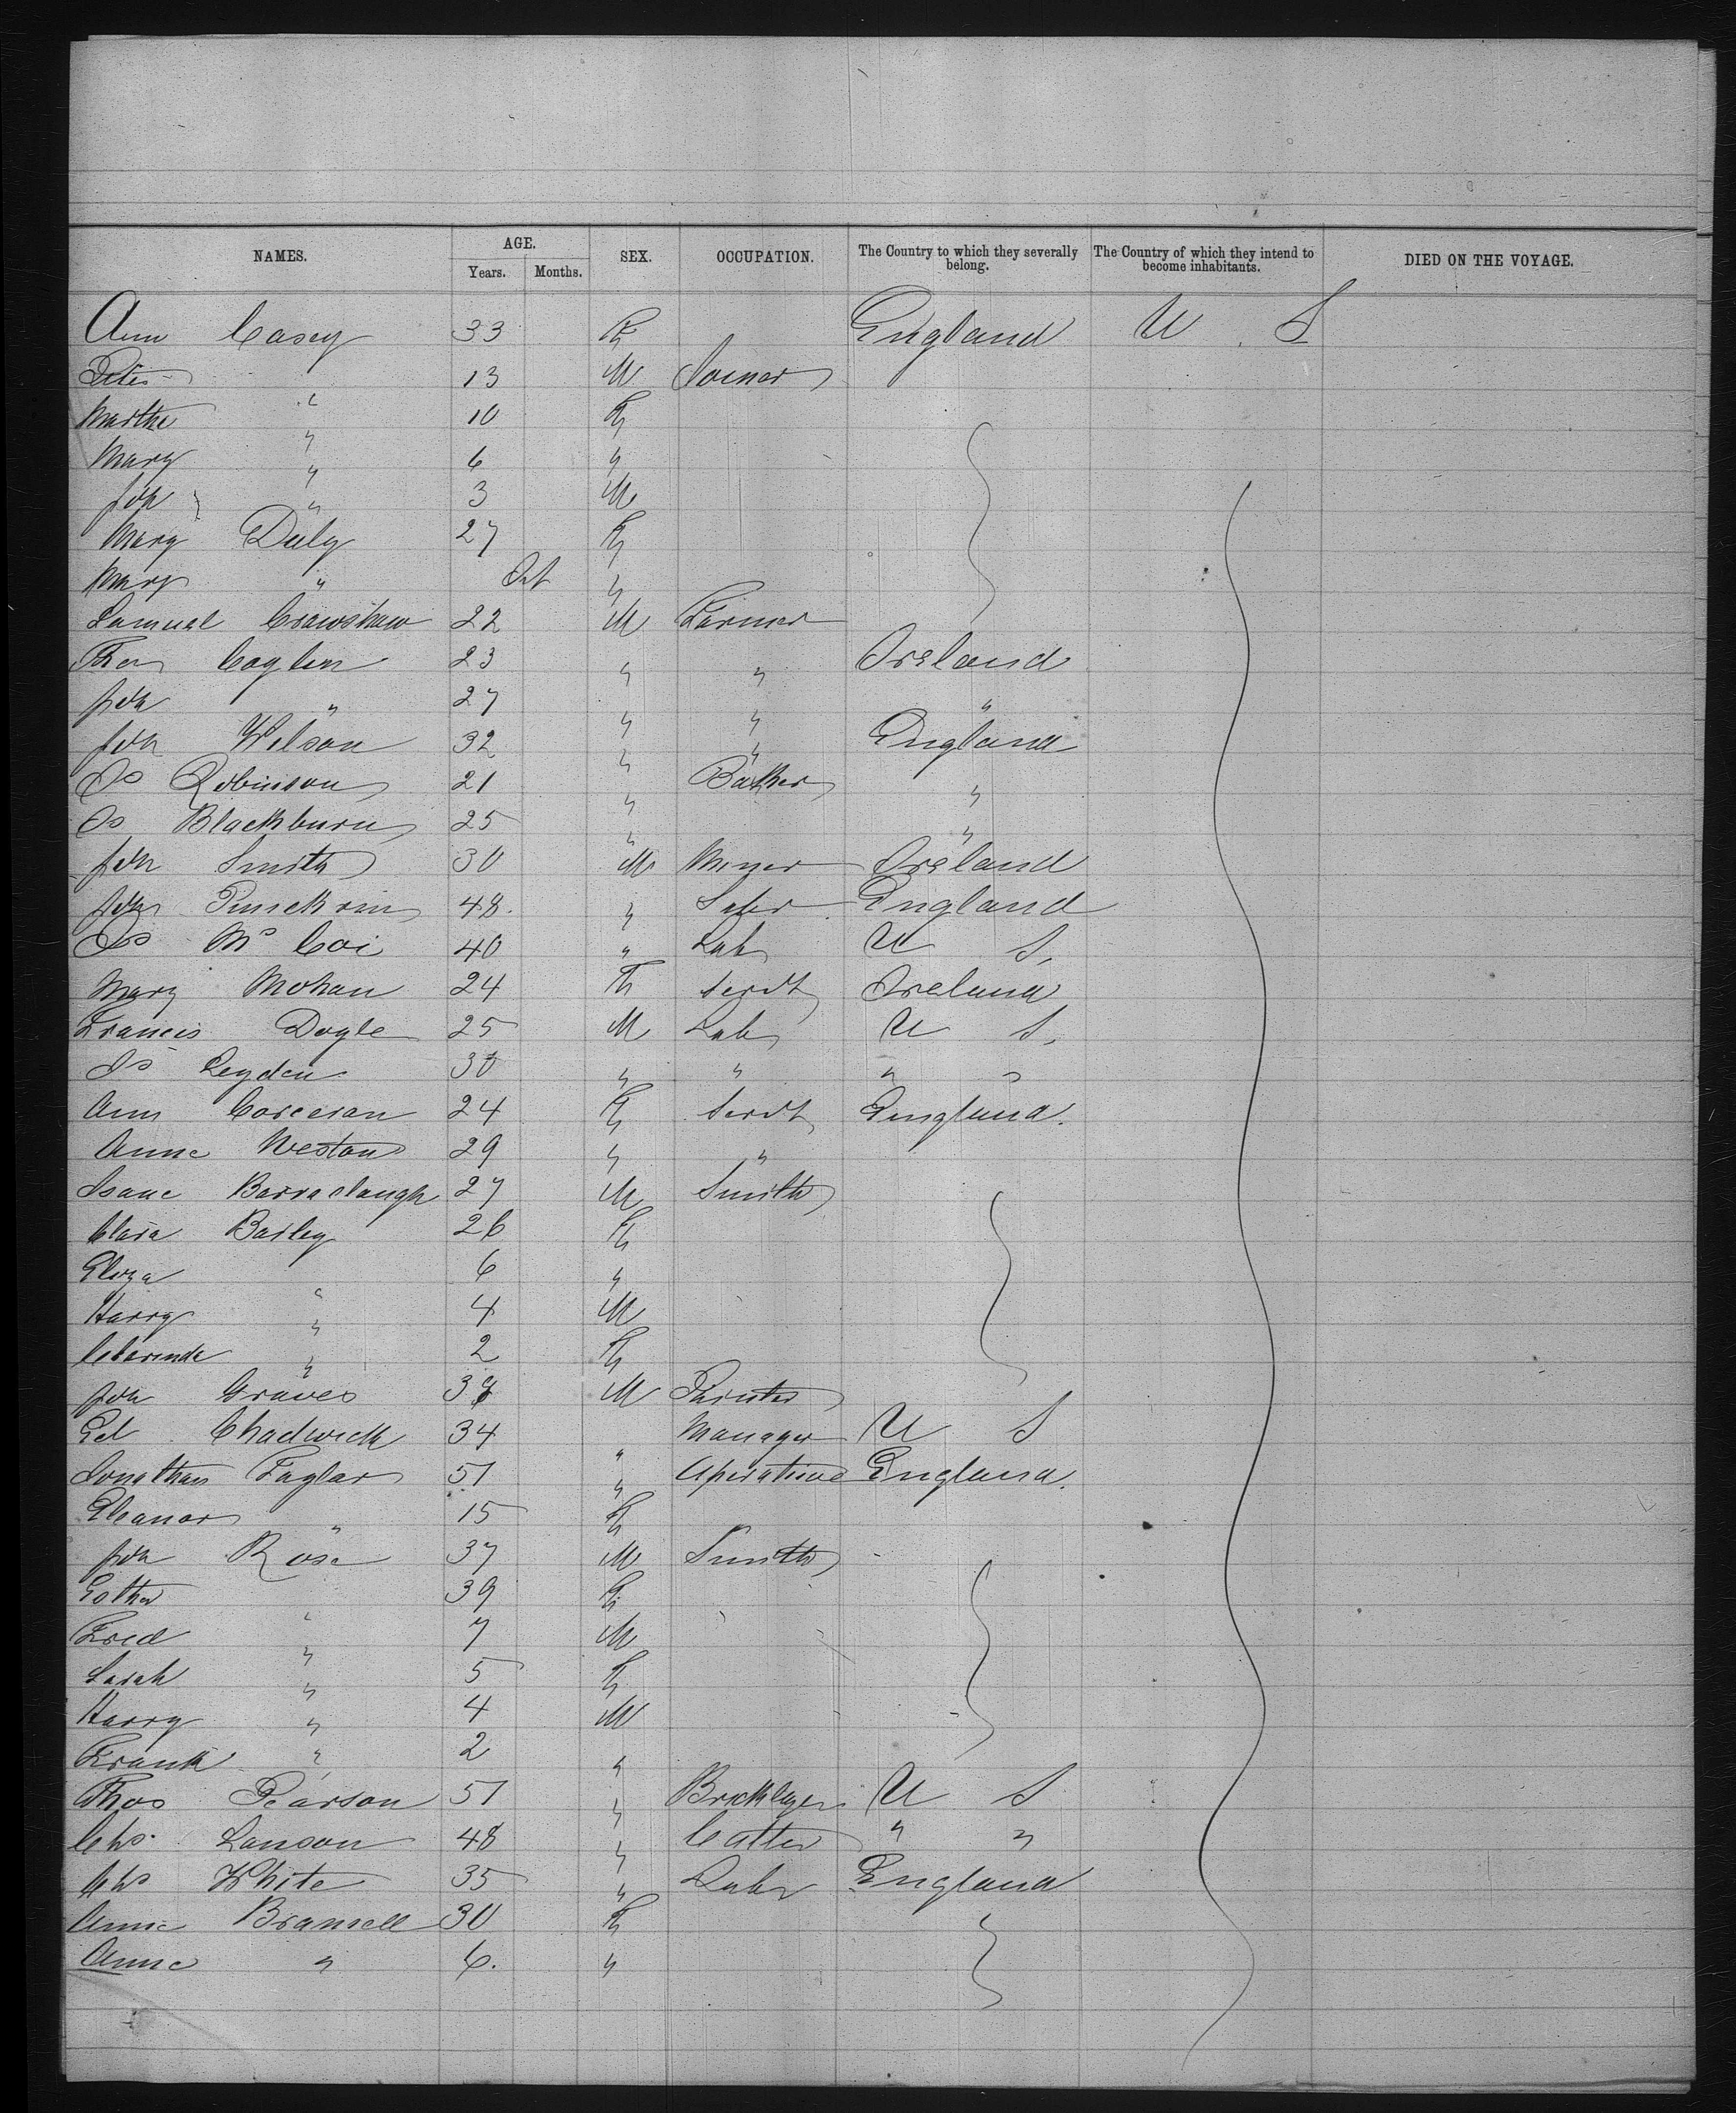 NAMES. AGE. SEX. OCCUPATION. The Country to which they severally belong. The Country of which they intend to become inhabitants. DIED ON THE VOYAGE.
Years. Months.
Ann Casey 33 F England U S
Peter 13 M Joiner
Martha " 10 F
Mary " 6 "
Joh " 3 M
Mary Duly 27 F
Mary " Inf "
Samual Crawshaw 22 M Farmer
Thos Coglen 23 " " Ireland
Joh " 27 " " "
Joh Wilson 32 " " England
Js Robinson 21 " Baker "
Js Blackburn 25 " "
Joh Smith 30 M Miner Ireland
Joh 48 " England
Js Mc Coi 40 " Lab U S.
Mary Mohan 24 F Servt Ireland
Francis Doyle 25 M Lab U S.
Js Leyden 30 " " " "
Ann Corceran 24 F Servt England.
Anne Weston 29 " "
Isaac Barraclaugh 27 M Smith
Clara Barley 26 F
Eliza " 6 "
Harry " 4 M
Clarinda " 2 F
Joh Graves 38 M Painter
Ed Chadwick 34 " Manager U S
Jonathan Taylar 51 " Operative England.
Eleanor " 15 F
Joh Rose 37 M Smith
Esther " 39 F
Fred " 7 M
Sarah " 5 F
Harry " 4 M
Frank " 2 "
Thos Pearson 51 " Bricklayer U S
Chs Lanson 48 " Cutter " "
Chs White 35 " Labr England
Annie Bramell 30 F
Anne " 6. "